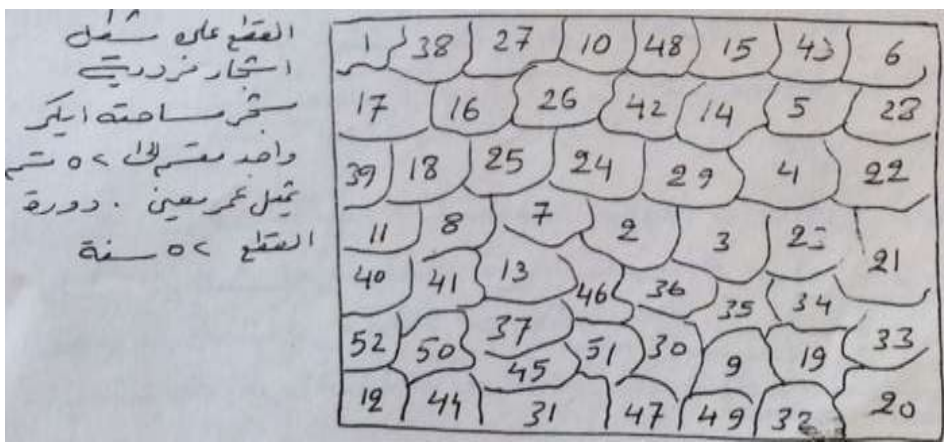 القطع على شكل
اشجار فردية
شجر مساحته ايكر
واحد مقسم الى ٥٢ قسم
يمثل عمر معين . دورة
القطع ٥٢ سنة
1 38 27 10 48 15 43 6
17 16 26 42 14 5 23
39 18 25 24 29 4 22
11 8 7 2 3 21
40 41 13 46 36 35 34
52 50 37 51 30 9 19 33
45
12 44 31 47 49 32 20